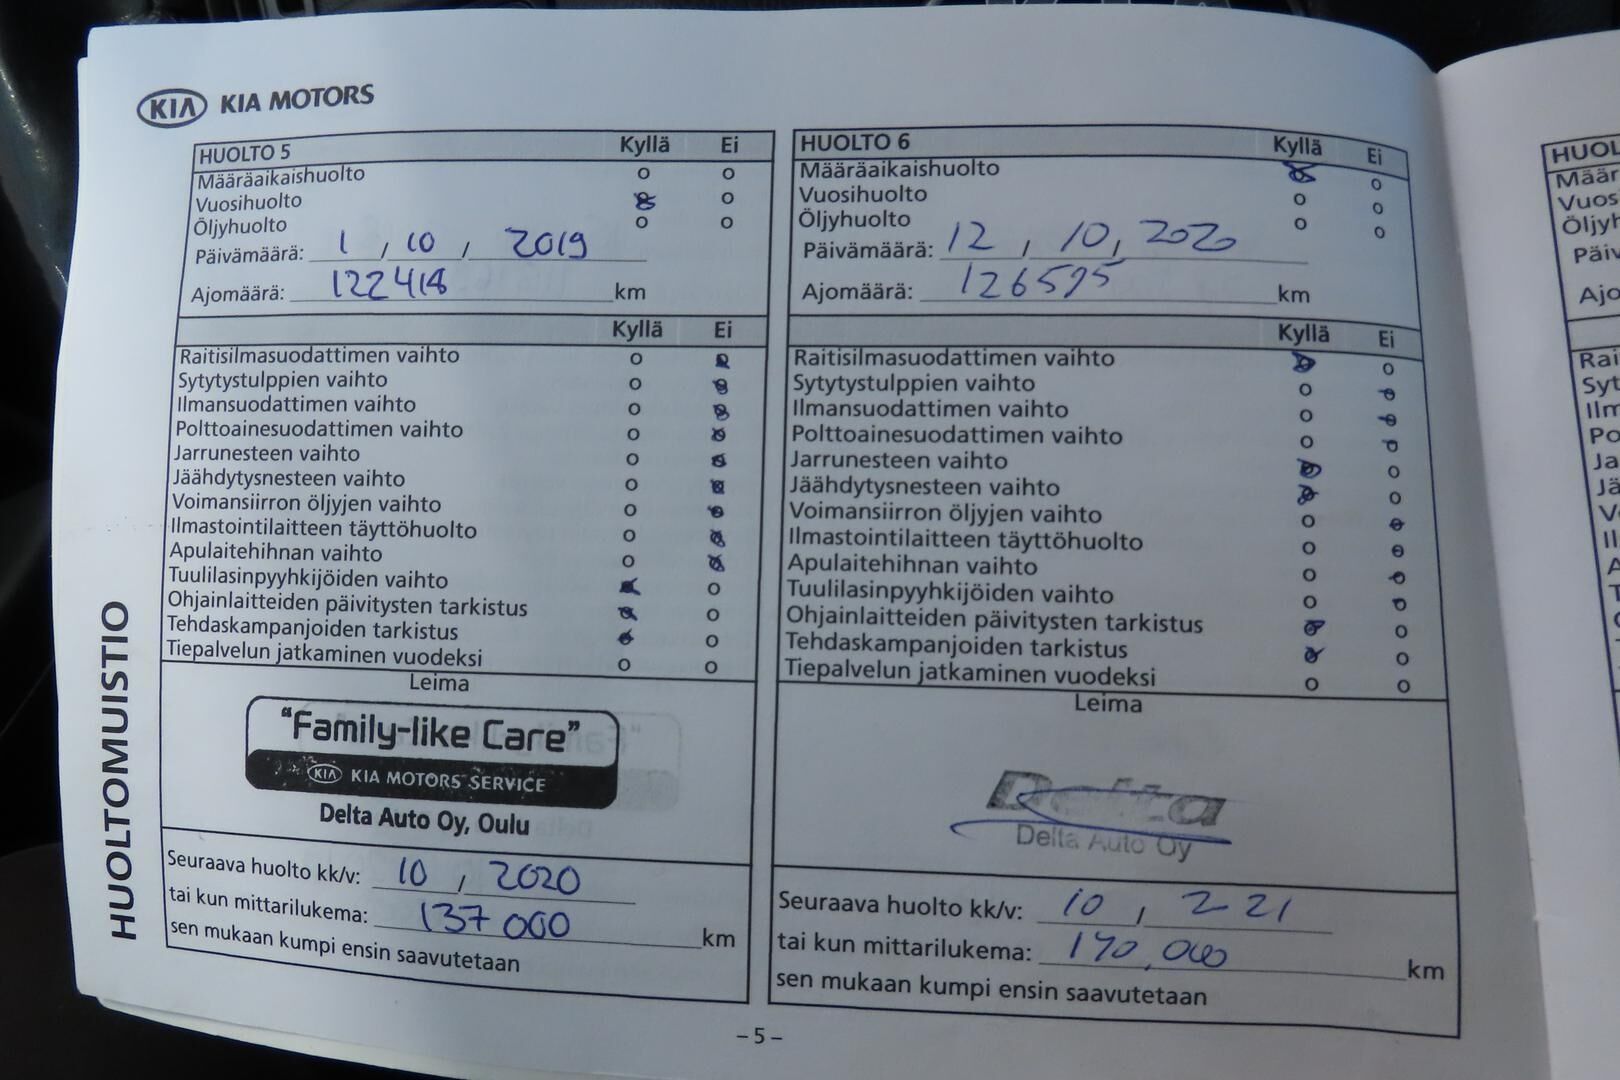 KIA KIA MOTORS
HUOLTOMUISTIO
HUOLTO 5 Kyllä Ei
Määräaikaishuolto o o
Vuosihuolto o
Öljyhuolto o o
Päivämäärä: 1 , 10 , 2019
Ajomäärä: 122418 km
Kyllä Ei
Raitisilmasuodattimen vaihto o
Sytytystulppien vaihto o
Ilmansuodattimen vaihto o
Polttoainesuodattimen vaihto o
Jarrunesteen vaihto o
Jäähdytysnesteen vaihto o
Voimansiirron öljyjen vaihto o
Ilmastointilaitteen täyttöhuolto o
Apulaitehihnan vaihto o
Tuulilasinpyyhkijöiden vaihto o
Ohjainlaitteiden päivitysten tarkistus o
Tehdaskampanjoiden tarkistus o
Tiepalvelun jatkaminen vuodeksi o o
Leima
"Family-like Care"
KIA KIA MOTORS SERVICE
Delta Auto Oy, Oulu
Seuraava huolto kk/v: 10 , 2020
tai kun mittarilukema: 137 000 km
sen mukaan kumpi ensin saavutetaan
HUOLTO 6 Kyllä Ei
Määräaikaishuolto o
Vuosihuolto o o
Öljyhuolto o o
Päivämäärä: 12 , 10, 2020
Ajomäärä: 126595 km
Kyllä Ei
Raitisilmasuodattimen vaihto o
Sytytystulppien vaihto o
Ilmansuodattimen vaihto o
Polttoainesuodattimen vaihto o
Jarrunesteen vaihto o
Jäähdytysnesteen vaihto o
Voimansiirron öljyjen vaihto o
Ilmastointilaitteen täyttöhuolto o
Apulaitehihnan vaihto o
Tuulilasinpyyhkijöiden vaihto o
Ohjainlaitteiden päivitysten tarkistus o
Tehdaskampanjoiden tarkistus o
Tiepalvelun jatkaminen vuodeksi o o
Leima
Delta
Delta Auto Oy
Seuraava huolto kk/v: 10 , 2021
tai kun mittarilukema: 140.000 km
sen mukaan kumpi ensin saavutetaan
– 5 –